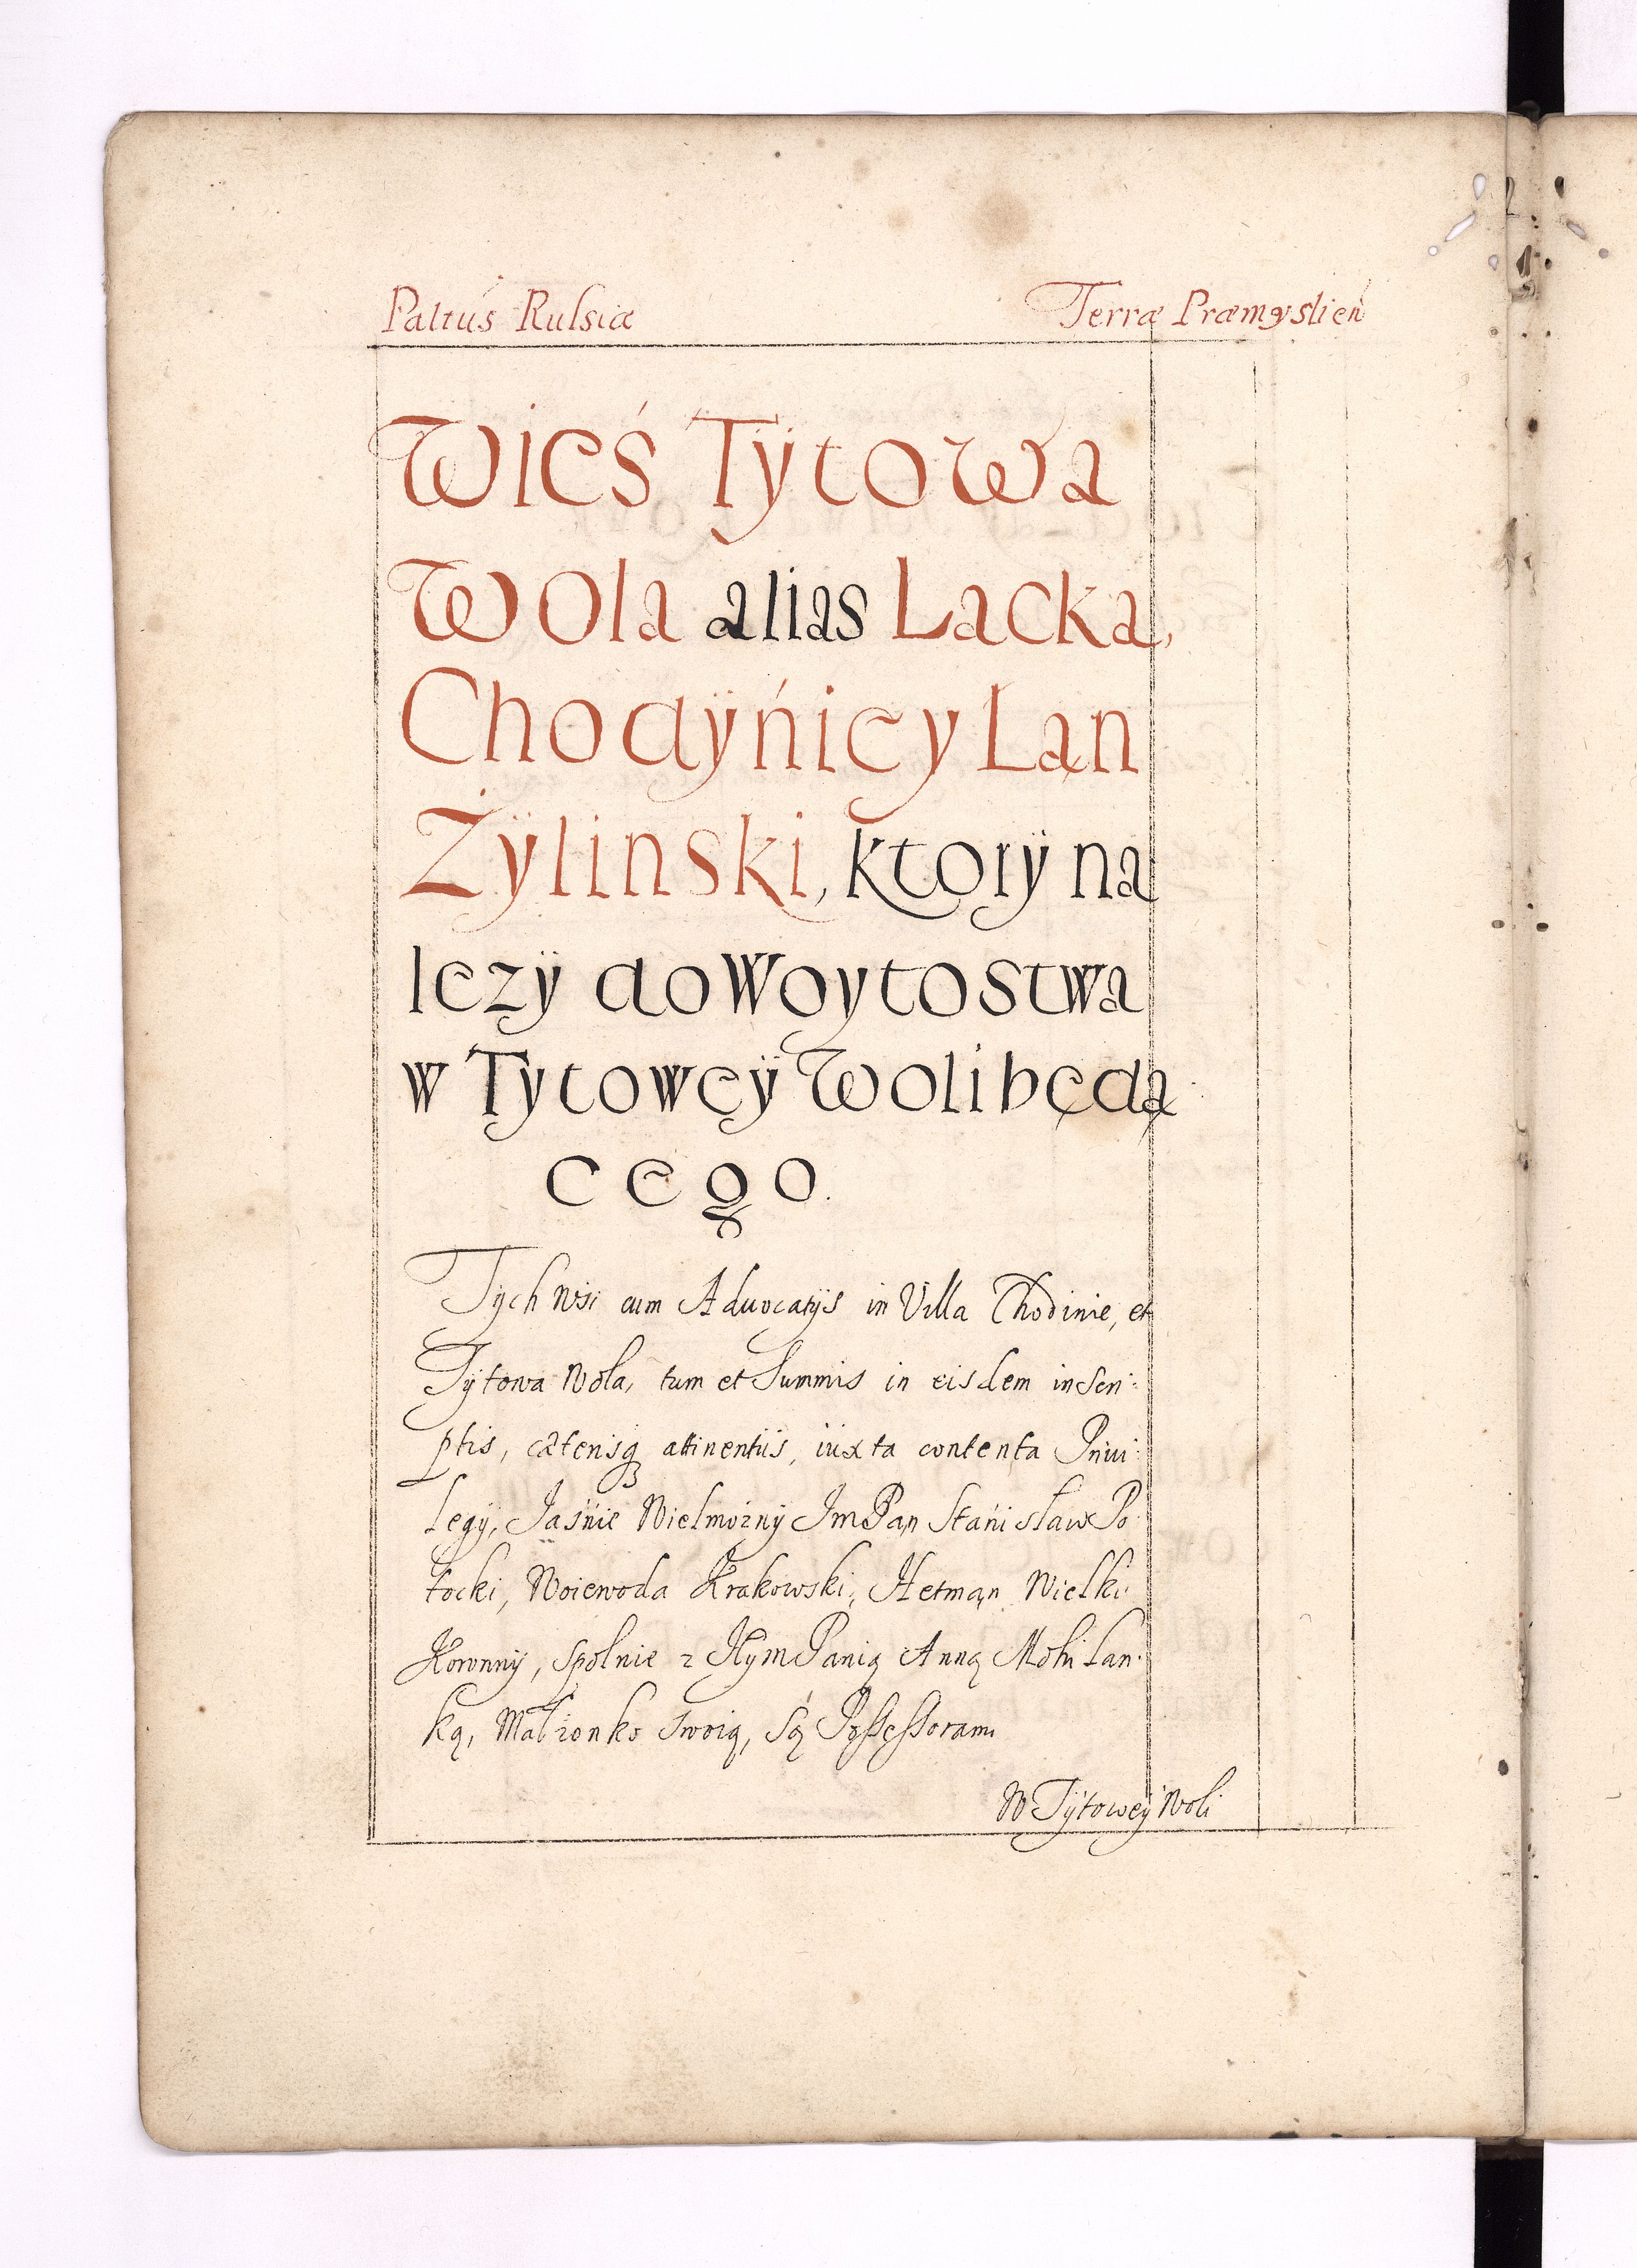 Paltus Russiæ Terræ Præmyslień
Wieś Tÿtowa
Wola alias Lacka,
Chodÿńicy Lan
Żÿlinski, ktorÿ na
lezÿ do Woytostwa
w Tytoweÿ Woli będą
cego.
Tych wsi cum Advocatÿs in Villa Chodinie, et
Tÿtowa Wola, tum et Summis in eisdem inscri:
ptis, cæterisq attinentiis, iuxta contenta Priui:
legÿ, Jaśnie Wielmożnÿ JmPan Stanisław Po
tocki, Woiewoda Krakowski, Hetman Wielki
Koronnÿ, spolnie z JeymPanią Anną Mohilan
ką, Małżonko swoią, są Possessorami
W Tÿtoweÿ Woli